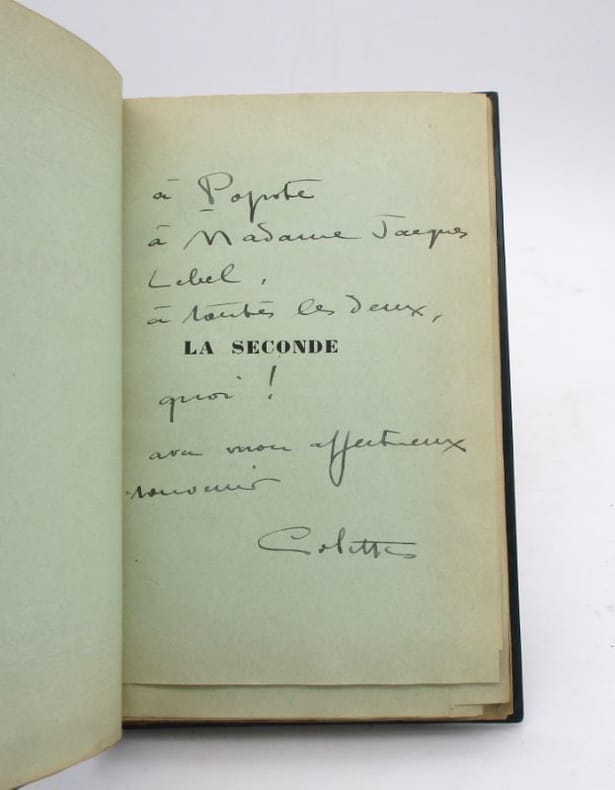 à Popote
à Madame Jacques
Lebel,
à toutes les deux,
LA SECONDE
quoi !
avec mon affectueux
souvenir
Colette